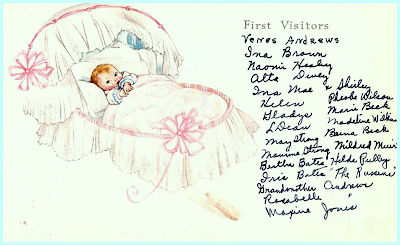 First Visitors
Veres Andrews
Ina Brown
Naomi Healey
Alta Dewey
Ina Mae & Shirley
Helen Phoebe Wilson
Gladys Marie Beck
LDean Madeline
May Strong Berna Beck
Maxine Strong Mildred Muir
Bertha Bates Hilda Pulley
Iris Bates "The Russens"
Grandmother Andrews
Rosabelle "
Maxine Jones